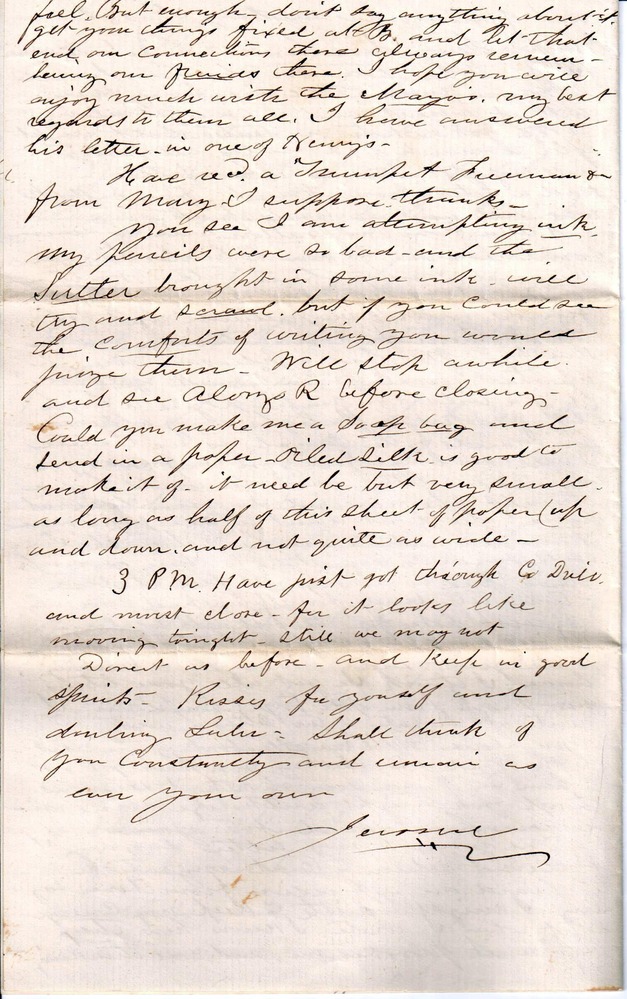 feel. But enough - don't say anything about it.
get your things fixed at B. and let that
end our connections there always remem-
bering our friends there. I hope you will
enjoy much with the Mayos. my best
regards to them all. I have answered
his letter - in one of Henny's -
Have recd. a "Trumpet Freeman &c
from Mary I suppose. thanks -
You see I am attempting ink.
my pencils were so bad - and the
Sutler brought in some ink. will
try and scrawl. but if you could see
the comforts of writing you would
prize them - Will stop awhile.
and see Alonzo R before closing -
Could you make me a Soap bag and
send in a paper - Oiled Silk is good to
make it of - it need be but very small.
as long as half of this sheet of paper (up
and down. and not quite as wide -
3 P.M. Have just got through Co Drill.
and must close - for it looks like
moving tonight - still we may not
Direct as before - and keep in good
spirits - Kisses for yourself and
darling Lulu - Shall think of
you constantly and remain as
ever your own
Jerome